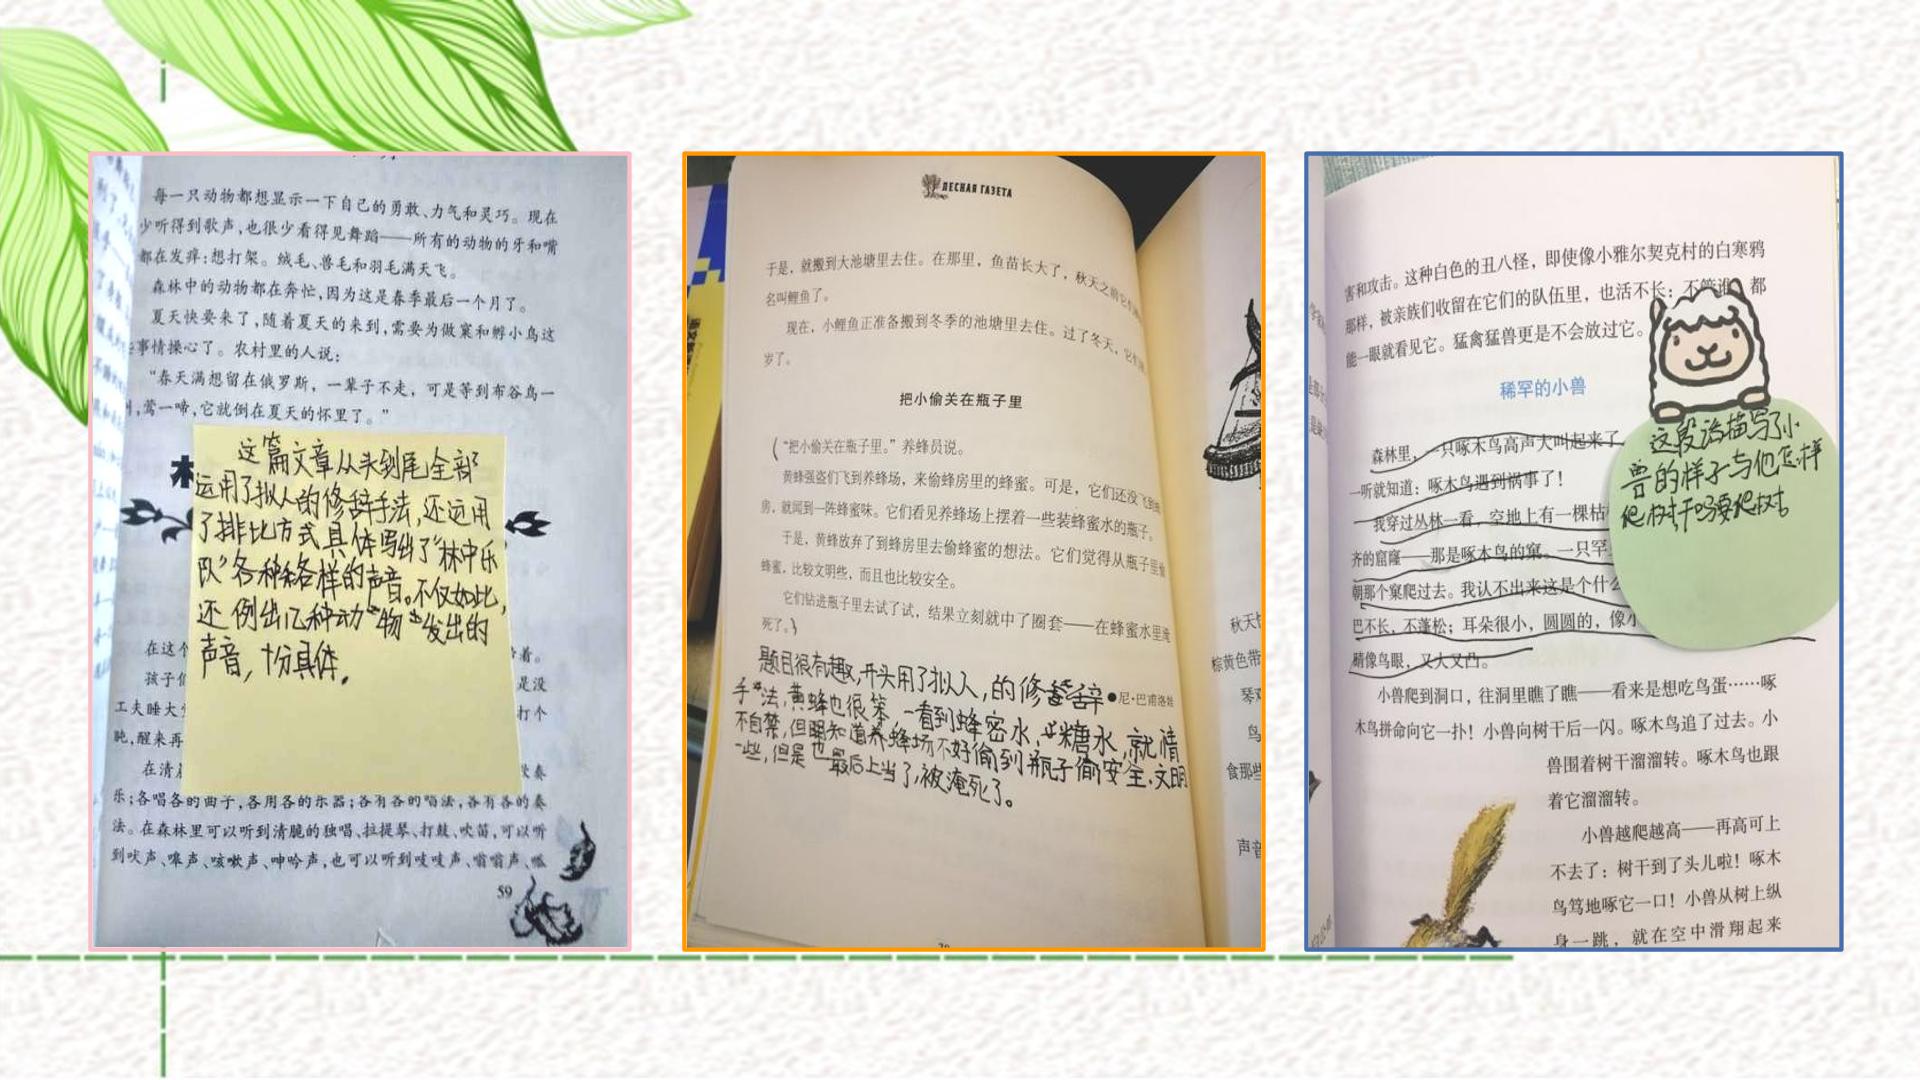 每一只动物都想显示一下自己的勇敢、力气和灵巧。现在
少听得到歌声,也很少看得见舞蹈——所有的动物的牙和嘴
都在发痒:想打架。绒毛、兽毛和羽毛满天飞。
森林中的动物都在奔忙,因为这是春季最后一个月了。
夏天快要来了,随着夏天的来到,需要为做窠和孵小鸟这
事情操心了。农村里的人说:
“春天满想留在俄罗斯,一辈子不走,可是等到布谷鸟一
,莺一啼,它就倒在夏天的怀里了。”
这篇文章从头到尾全部
运用了拟人的修辞手法,还运用
了排比方式具体写出了“林中乐
队”各种各样的声音。不仅如此,
还例出几种动“物”发出的
声音,十分具体。
在这个
着。
孩子们
是没
工夫睡大
打个
盹,醒来再
在清晨
奏
乐;各唱各的曲子,各用各的乐器;各有各的唱法,各有各的奏
法。在森林里可以听到清脆的独唱、拉提琴、打鼓、吹笛,可以听
到吠声、嗥声、咳嗽声、呻吟声,也可以听到吱吱声、嗡嗡声、呱
59
ЛЕСНАЯ ГАЗЕТА
于是,就搬到大池塘里去住。在那里,鱼苗长大了,秋天之前它们
名叫鲤鱼了。
现在,小鲤鱼正准备搬到冬季的池塘里去住。过了冬天,它们
岁了。
把小偷关在瓶子里
(“把小偷关在瓶子里。”养蜂员说。
黄蜂强盗们飞到养蜂场,来偷蜂房里的蜂蜜。可是,它们还没飞到
房,就闻到一阵蜂蜜味。它们看见养蜂场上摆着一些装蜂蜜水的瓶子。
于是,黄蜂放弃了到蜂房里去偷蜂蜜的想法。它们觉得从瓶子里偷
蜂蜜,比较文明些,而且也比较安全。
它们钻进瓶子里去试了试,结果立刻就中了圈套——在蜂蜜水里淹
死了。)
●尼·巴甫洛娃
题目很有趣,开头用了拟人,的修辞
手法,黄蜂也很笨,一看到蜂密水,糖水,就情
不自禁,但明知道养蜂场不好偷到瓶子偷安全.文明
一些,但是也最后上当了,被淹死了。
秋天
棕黄色带
琴
鸟
食那些
声音
害和攻击。这种白色的丑八怪,即使像小雅尔契克村的白寒鸦
那样,被亲族们收留在它们的队伍里,也活不长:不管谁,都
能一眼就看见它。猛禽猛兽更是不会放过它。
稀罕的小兽
森林里,一只啄木鸟高声大叫起来了
一听就知道:啄木鸟遇到祸事了!
我穿过丛林一看,空地上有一棵枯
齐的窟窿——那是啄木鸟的窠。一只罕
朝那个窠爬过去。我认不出来这是个什么
巴不长,不蓬松;耳朵很小,圆圆的,像小
睛像鸟眼,又大又凸。
这段话描写了小
兽的样子与他怎样
爬树干吗要爬树
小兽爬到洞口,往洞里瞧了瞧——看来是想吃鸟蛋……啄
木鸟拼命向它一扑!小兽向树干后一闪。啄木鸟追了过去。小
兽围着树干溜溜转。啄木鸟也跟
着它溜溜转。
小兽越爬越高——再高可上
不去了:树干到了头儿啦!啄木
鸟笃地啄它一口!小兽从树上纵
身一跳,就在空中滑翔起来